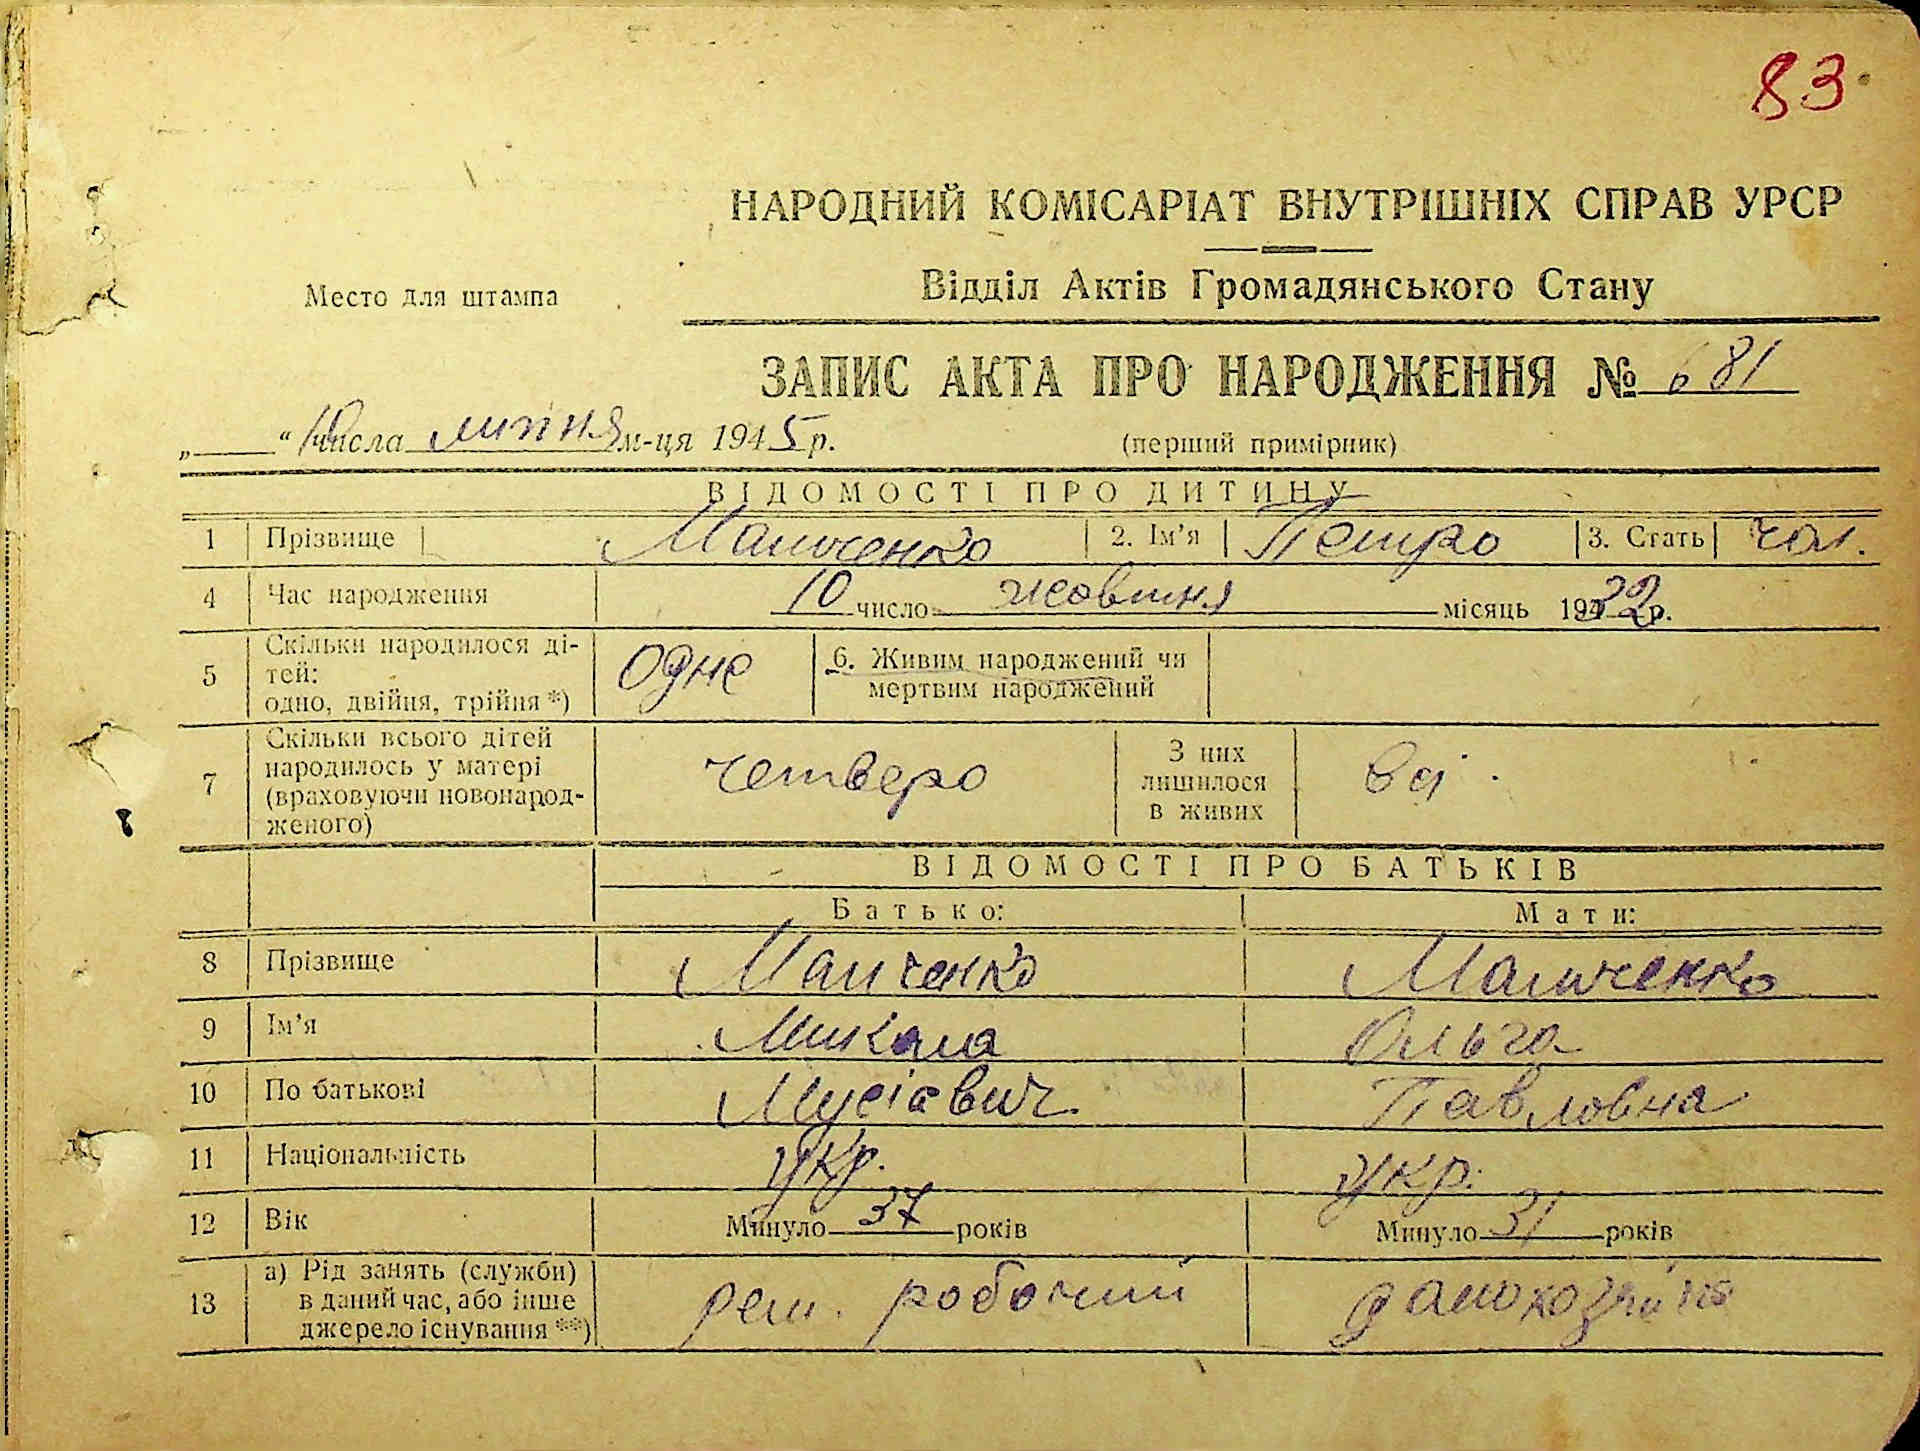 83
НАРОДНИЙ КОМІСАРІАТ ВНУТРІШНІХ СПРАВ УРСР
Место для штампа
Відділ Актів Громадянського Стану
ЗАПИС АКТА ПРО НАРОДЖЕННЯ № 681
„ “ 10 числа липня м-ця 1945 р.
(перший примірник)
ВІДОМОСТІ ПРО ДИТИНУ
1 Прізвище 2. Ім’я Петро 3. Стать чол.
4 Час народження 10 число жовтня місяць 1932 р.
5 Скільки народилося ді-
тей:
одно, двійня, трійня *) Одне
6. Живим народжений чи
мертвим народжений
7 Скільки всього дітей
народилось у матері
(враховуючи новонарод-
женого) четверо
З них
лишилося
в живих всі
ВІДОМОСТІ ПРО БАТЬКІВ
Батько: Мати:
8 Прізвище
9 Ім’я Микола Ольга
10 По батькові Мусієвич Павловна
11 Національність укр. укр.
12 Вік Минуло 37 років Минуло 31 років
13 а) Рід занять (служби)
в даний час, або інше
джерело існування **) робочий